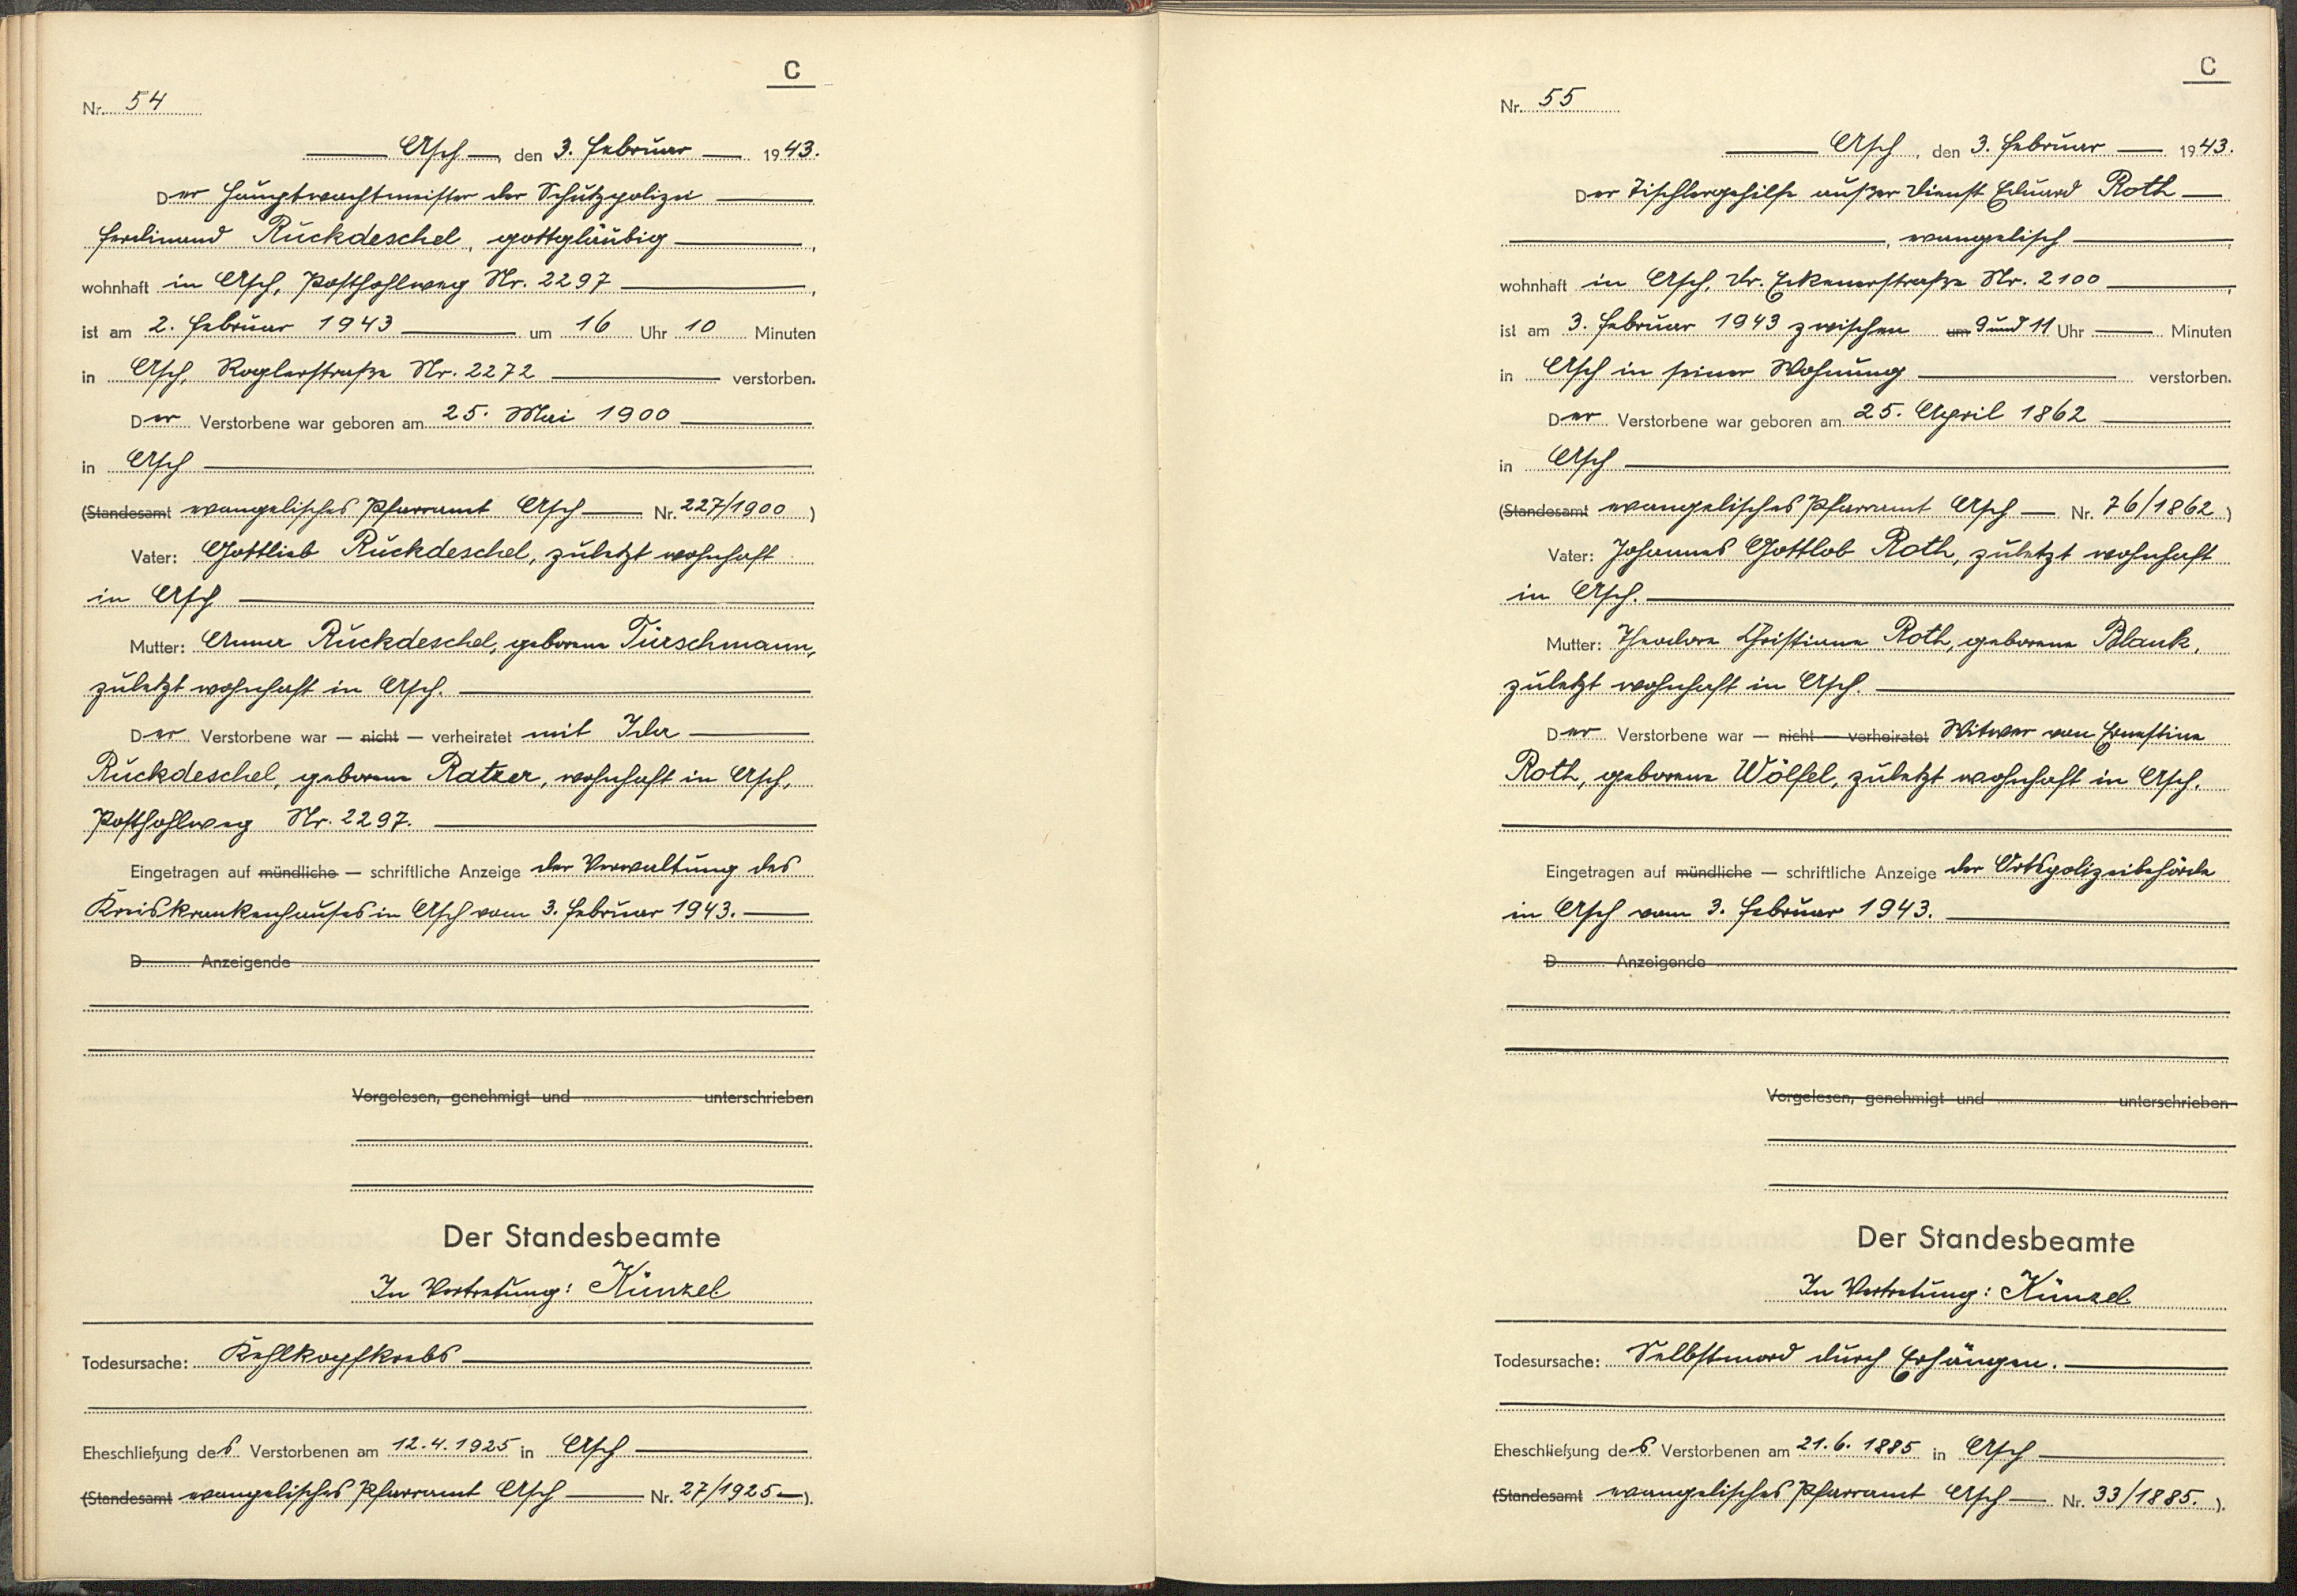 C
Nr. 54
Asch, den 3. Februar 1943.
Der Hauptwachtmeister der Schutzpolizei
Ferdinand Rückdeschel, gottgläubig,
wohnhaft in Asch, Posthohlweg Nr. 2297,
ist am 2. Februar 1943 um 16 Uhr 10 Minuten
in Asch, Roglerstraße Nr. 2272 verstorben.
Der Verstorbene war geboren am 25. Mai 1900
in Asch
(Standesamt evangelisches Pfarramt Asch Nr. 227/1900)
Vater: Gottlieb Rückdeschel, zuletzt wohnhaft
in Asch
Mutter: Anna Rückdeschel, geborene Türschmann,
zuletzt wohnhaft in Asch.
Der Verstorbene war — nicht — verheiratet mit Ida
Rückdeschel, geborene Ratzer, wohnhaft in Asch,
Posthohlweg Nr. 2297.
Eingetragen auf mündliche — schriftliche Anzeige der Verwaltung des
Kreiskrankenhauses in Asch vom 3. Februar 1943.
D Anzeigende
Vorgelesen, genehmigt und unterschrieben
Der Standesbeamte
In Vertretung: Künzel
Todesursache: Kehlkopfkrebs
Eheschließung des Verstorbenen am 12.4.1925 in Asch
(Standesamt evangelisches Pfarramt Asch Nr. 27/1925).
C
Nr. 55
Asch, den 3. Februar 1943.
Der Tischlergehilfe außer Dienst Eduard Roth
, evangelisch,
wohnhaft in Asch, Dr. Eckenerstraße Nr. 2100,
ist am 3. Februar 1943 zwischen um 9 und 11 Uhr Minuten
in Asch in seiner Wohnung verstorben.
Der Verstorbene war geboren am 25. April 1862
in Asch
(Standesamt evangelisches Pfarramt Asch Nr. 76/1862)
Vater: Johannes Gottlob Roth, zuletzt wohnhaft
in Asch.
Mutter: Theodore Christiane Roth, geborene Blank,
zuletzt wohnhaft in Asch.
Der Verstorbene war — nicht — verheiratet Witwer von Ernestine
Roth, geborene Wölfel, zuletzt wohnhaft in Asch.
Eingetragen auf mündliche — schriftliche Anzeige der Ortspolizeibehörde
in Asch vom 3. Februar 1943.
D Anzeigende
Vorgelesen, genehmigt und unterschrieben
Der Standesbeamte
In Vertretung: Künzel
Todesursache: Selbstmord durch Erhängen.
Eheschließung des Verstorbenen am 21.6.1885 in Asch
(Standesamt evangelisches Pfarramt Asch Nr. 33/1885.).